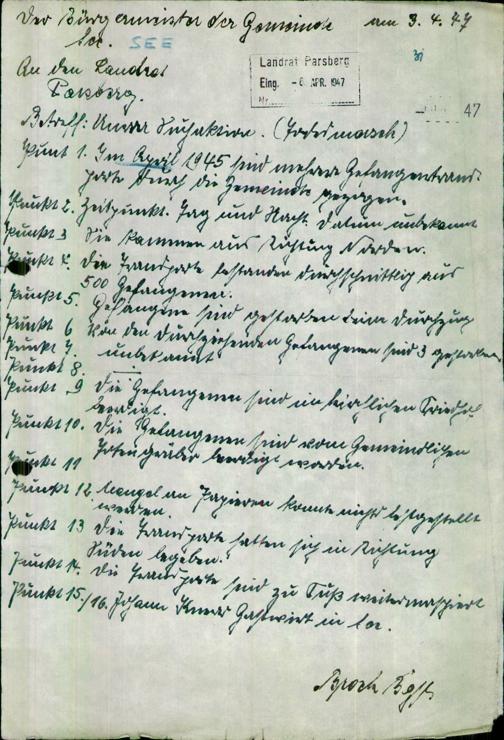 Der Bürgermeister der Gemeinde am 3.4.47
See. SEE
An den Landrat
Parsberg.
Landrat Parsberg
Eing. - 6. APR. 1947
Nr.
47
Betreff: Unrra Suchaktion. (Todesmarsch)
Punkt 1. Im April 1945 sind mehrere Gefangentrans-
porte durch die Gemeinde gezogen.
Punkt 2. Zeitpunkt. Tag und Nacht. Datum unbekannt
Punkt 3 Sie kamen aus Richtung Norden.
Punkt 4. Die Transporte bestanden durchschnittlich aus
500 Gefangenen.
Punkt 5. Gefangene sind gestorben beim Durchzug
Punkt 6 Von den durchziehenden Gefangenen sind 3 gestorben
Punkt 7. unbekannt
Punkt 8. —
Punkt 9 Die Gefangenen sind im kirchlichen Friedhof
beerdigt.
Punkt 10. Die Gefangenen sind vom Gemeindlichen
Punkt 11 Totengräber beerdigt worden.
Punkt 12 Mangel an Papieren konnte nichts festgestellt
werden.
Punkt 13 Die Transporte hatten sich in Richtung
Süden begeben.
Punkt 14. Die Transporte sind zu Fuß weitermarschiert
Punkt 15./16. Johann Gastwirt in See.
Bgst.